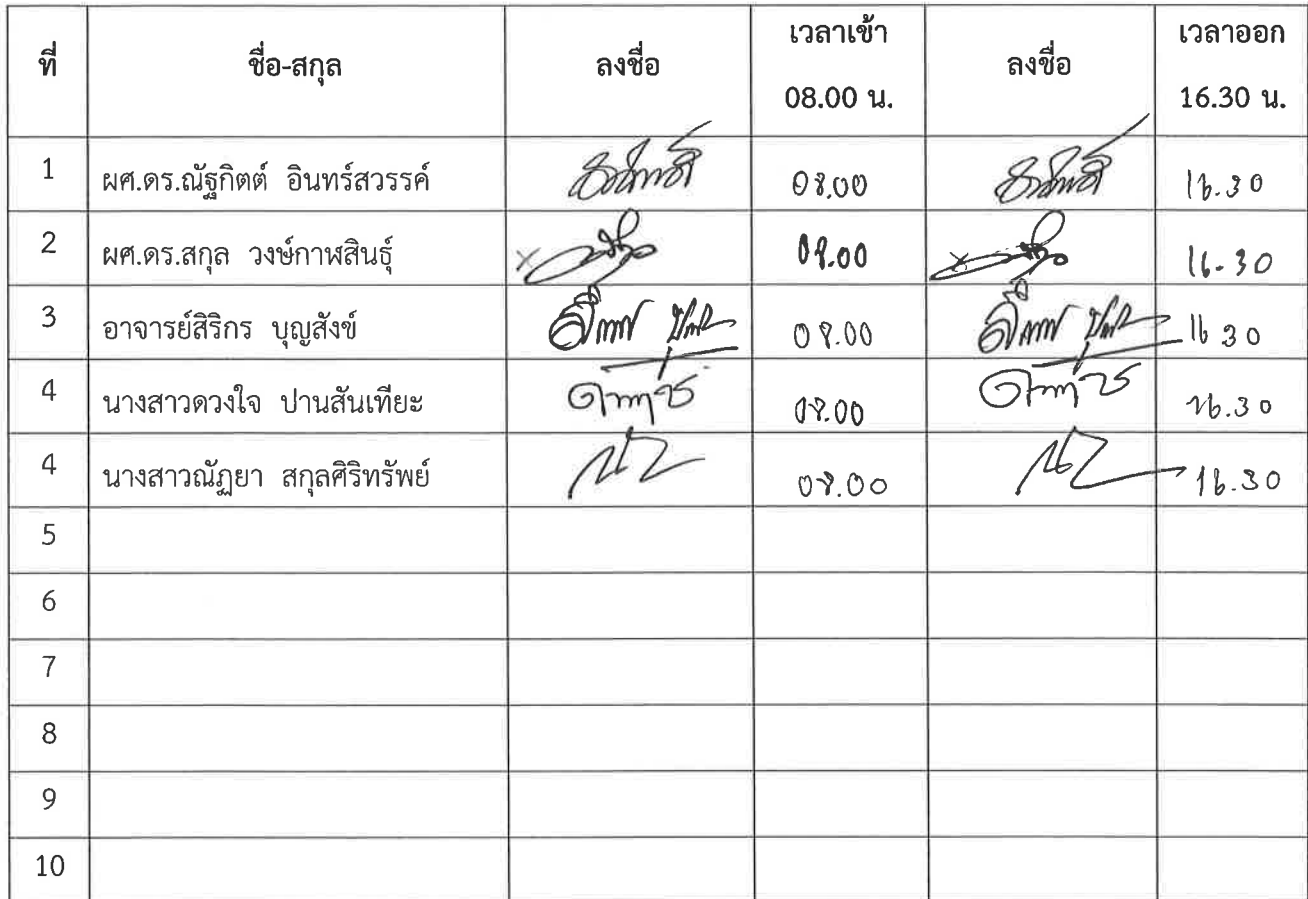 ที่ ชื่อ-สกุล ลงชื่อ เวลาเข้า 08.00 น. ลงชื่อ เวลาออก 16.30 น.
1 ผศ.ดร.ณัฐกิตต์ อินทร์สวรรค์ 08.00 16.30
2 ผศ.ดร.สกุล วงษ์กาฬสินธุ์ 08.00 16.30
3 อาจารย์สิริกร บุญสังข์ 08.00 16 30
4 นางสาวดวงใจ ปานสันเทียะ 08.00 16.30
4 นางสาวณัฏยา สกุลศิริทรัพย์ 08.00 16.30
5
6
7
8
9
10